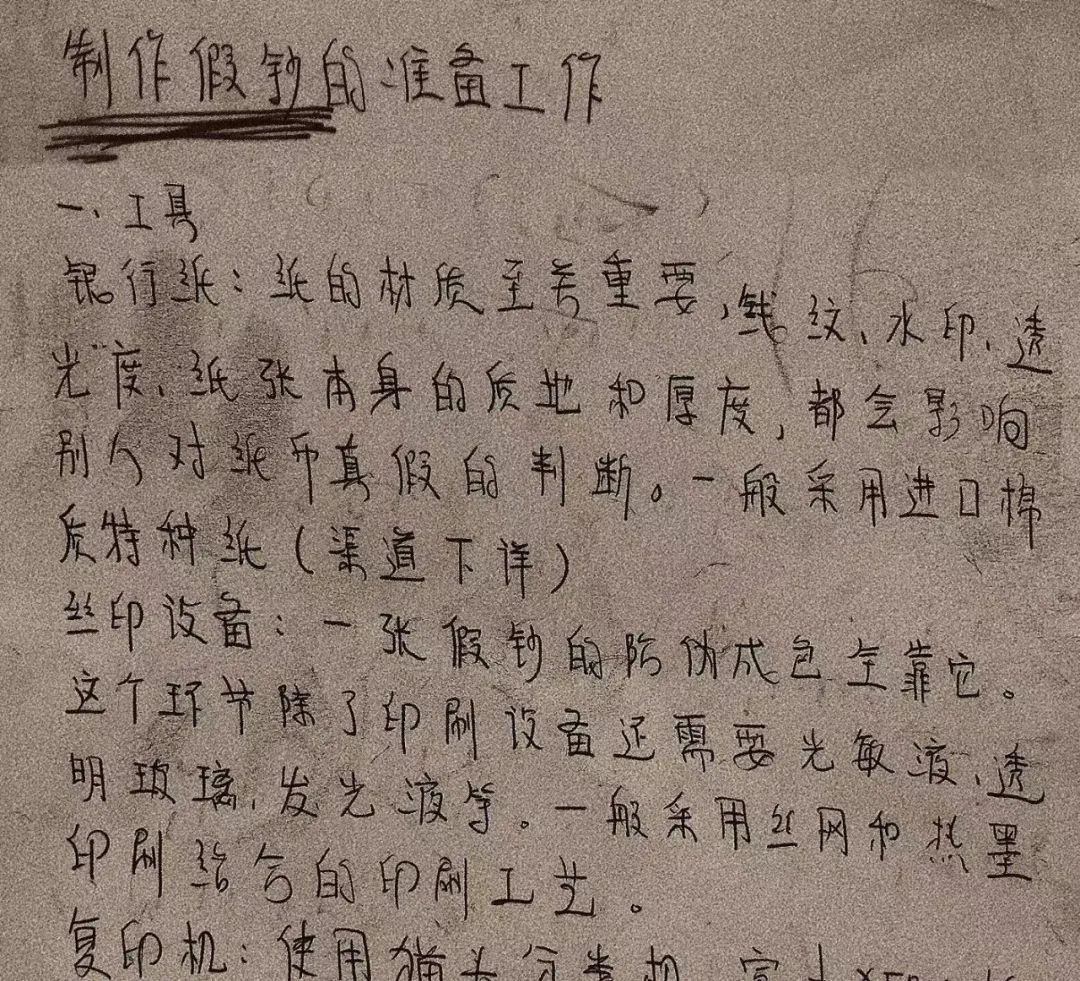 制作假钞的准备工作
一、工具
银行纸：纸的材质至关重要，纹、水印、透
光度、纸张本身的质地和厚度，都会影响
别人对纸币真假的判断。一般采用进口棉
质特种纸（渠道下详）
丝印设备：一张假钞的防伪成色全靠它。
这个环节除了印刷设备还需要光敏液、透
明玻璃、发光液等。一般采用丝网和热墨
印刷结合的印刷工艺。
复印机：使用